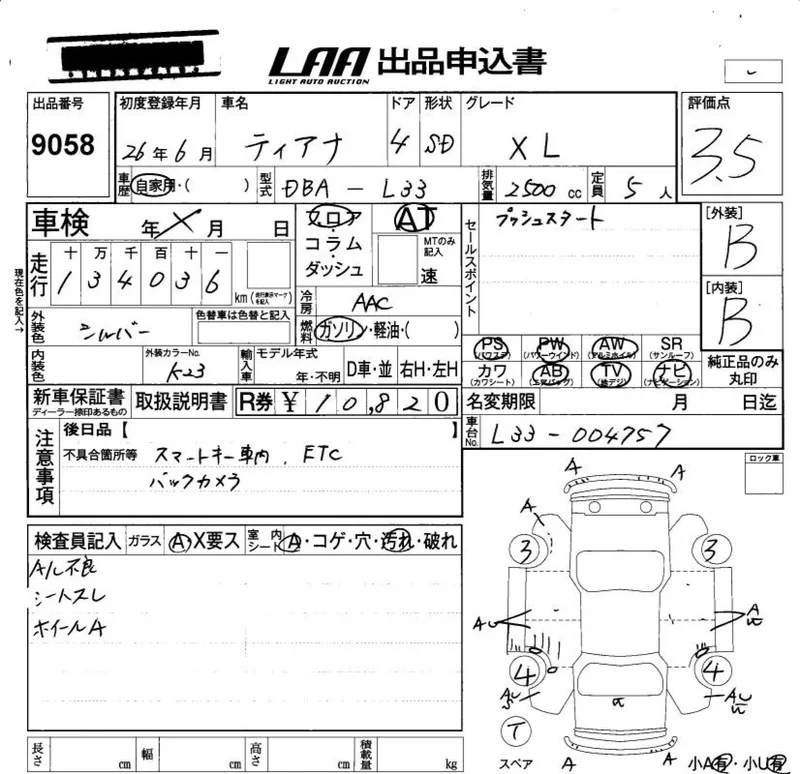 LAA 出品申込書
LIGHT AUTO AUCTION
出品番号 初度登録年月 車名 ドア 形状 グレード 評価点
9058 26年6月 ティアナ 4 SD XL 3.5
車歴 自家用・( ) 型式 DBA-L33 排気量 2500cc 定員 5人
車検 年 X 月 日
フロア・コラム・ダッシュ
AT
MTのみ記入
速
セールスポイント
プッシュスタート
[外装]
B
[内装]
B
現在色を記入→
走行
十万千百十一
134036 km (走行表示マークを記入)
冷房 AAC
燃料 ガソリン・軽油・( )
外装色 シルバー
色替車は色替と記入
PS (パワステ) PW (パワーウインド) AW (アルミホイル) SR (サンルーフ)
カワ (カワシート) AB (エアバッグ) TV (地デジ) ナビ (ナビゲーション)
純正品のみ丸印
内装色 外装カラーNo. K-23
輸入車 モデル年式 年・不明 D車・並 右H・左H
新車保証書 ディーラー捺印あるもの 取扱説明書 R券 ¥10,820
名変期限 月 日迄
車台No. L33-004757
注意事項
後日品【 】
不具合箇所等 スマートキー車内、ETC
バックカメラ
ロック車
検査員記入 ガラス A X要ス 室内シート A・コゲ・穴・汚れ・破れ
A/L不良
シートスレ
ホイールA
A A
A
3 3
AU A
U
4 4
AU AU
U
a
T
スペア A A
小A有・小U有
長さ cm 幅 cm 高さ cm 積載量 kg